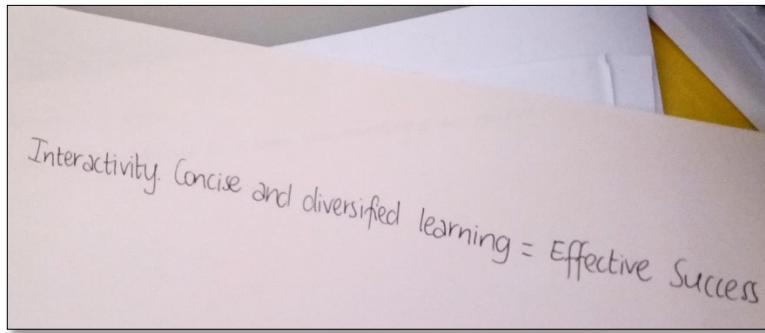 Interactivity. Concise and diversified learning = Effective Success